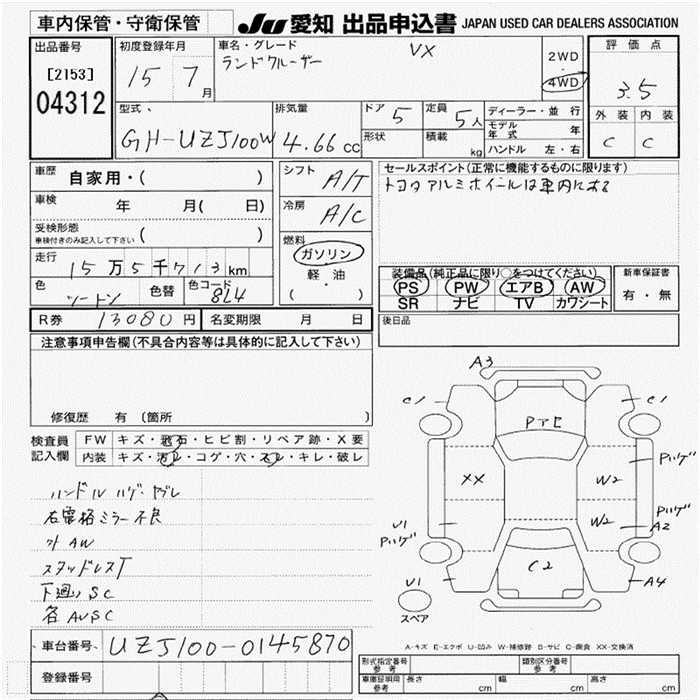 車内保管・守衛保管
JU 愛知 出品申込書 JAPAN USED CAR DEALERS ASSOCIATION
出品番号
[2153]
04312
初度登録年月
15 7月
車名・グレード
ランドクルーザー VX
2WD
・
4WD
評価点
3.5
外装 内装
C C
型式
GH-UZJ100W
排気量
4.66cc
ドア 5
形状
定員 5人
積載 kg
ディーラー・並行
モデル年式 年
ハンドル 左・右
車歴
自家用・( )
車検 年 月( 日)
受検形態
車検付きのみ記入して下さい ( )
走行 15万5千713km
色 ツートン 色替 色コード 8L4
シフト A/T
冷房 A/C
燃料
ガソリン
軽・油
( ・ )
セールスポイント(正常に機能するものに限ります)
トヨタアルミホイールは車内にある
装備品(純正品に限り○をつけてください)
PS PW エアB AW
SR ナビ TV カワシート
新車保証書
有・無
R券 13080円 名変期限 月 日
後日品
注意事項申告欄(不具合内容等は具体的に記入して下さい)
修復歴 有 (箇所
検査員記入欄
FW キズ・飛石・ヒビ割・リペア跡・X要
内装 キズ・汚レ・コゲ・穴・スレ・キレ・破レ
ハンドル ハゲ・ヤブレ
右電格ミラー不良
外 AW
スタッドレスT
下廻り SC
各 AUSC
A3
C1
C1
PアE
XX
W2
Pハゲ
U1
Pハゲ
W2
Pハゲ
A2
C2
U1
A4
スペア
A-キズ E-エクボ U-凹み W-補修跡 B-サビ C-腐食 XX-交換済
車台番号 UZJ100-0145870
登録番号
形式指定番号
参考
類別区分番号
参考
車庫証明用
参考
長さ cm 幅 cm 高さ cm